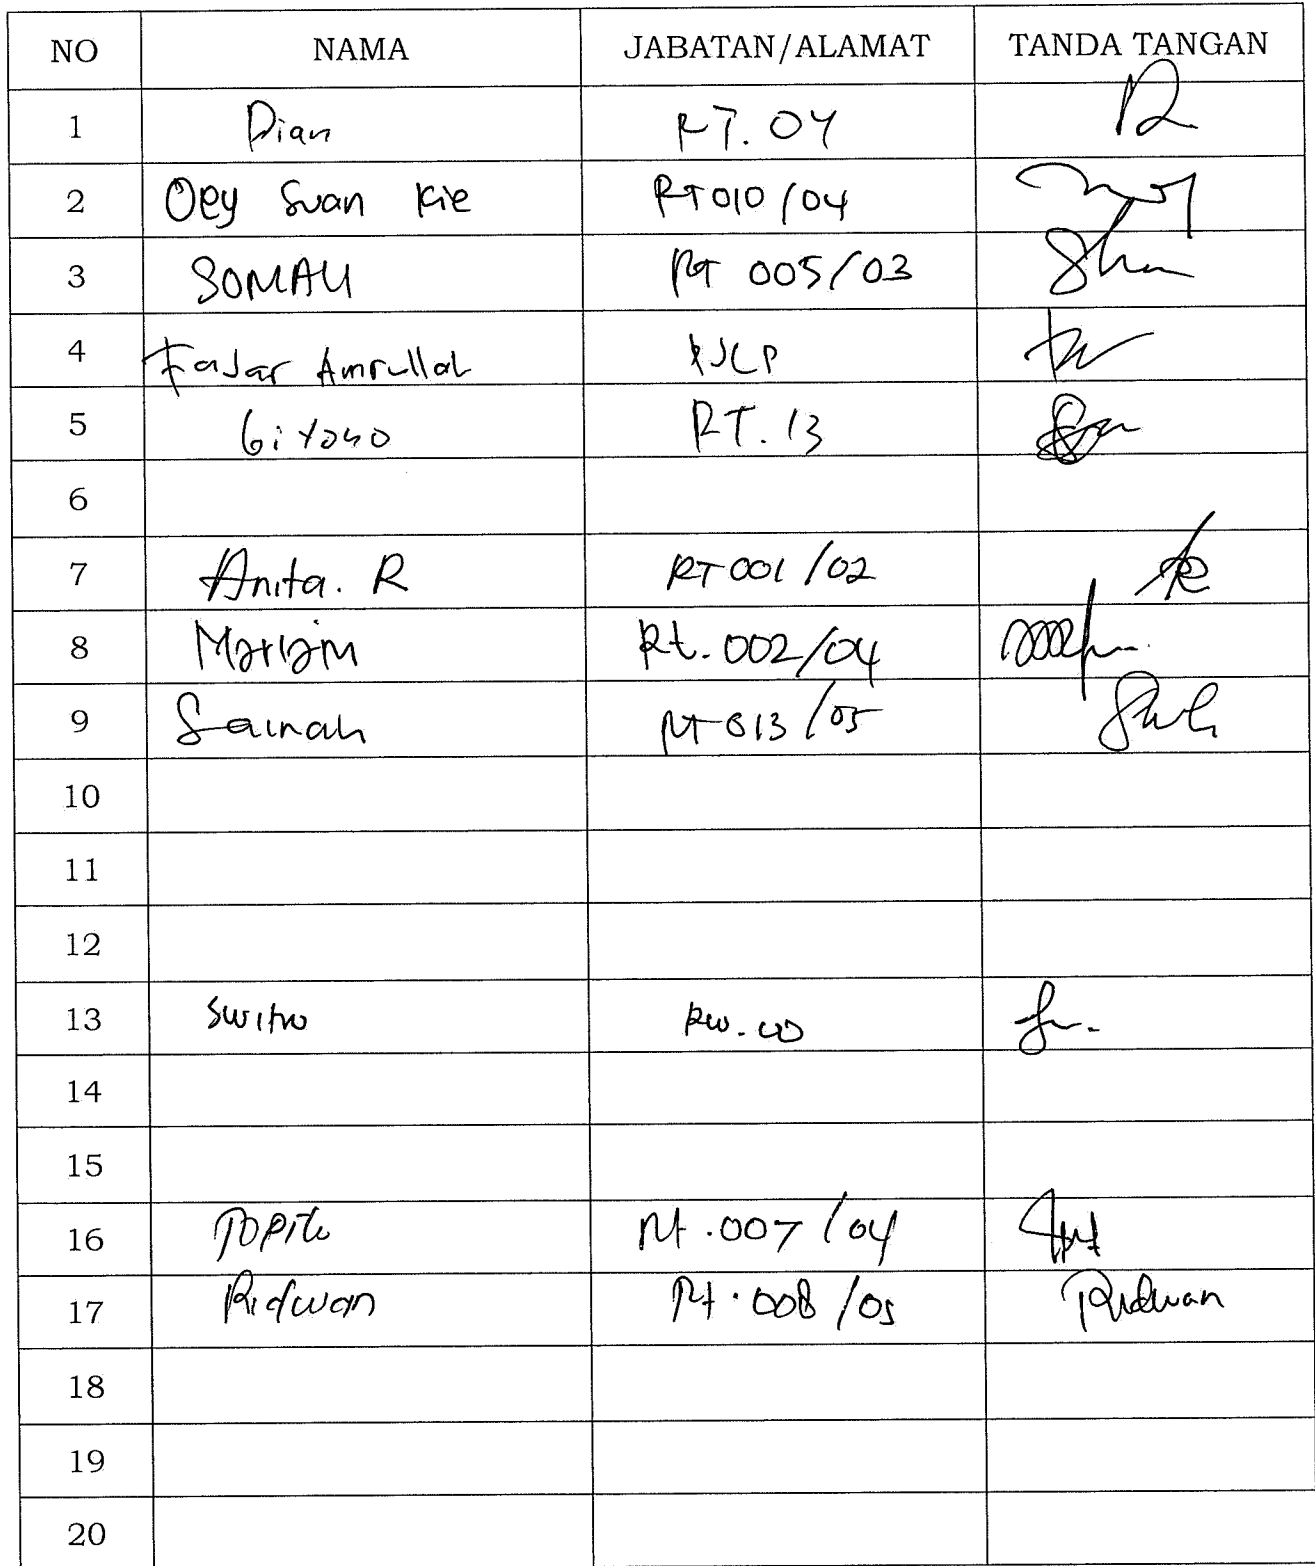 NO NAMA JABATAN/ALAMAT TANDA TANGAN
1 Dian RT. 04
2 Oey Suan Kie RT010/04
3 SOMAU RT 005/03
4 Fajar Amrullah PJLP
5 Giyono RT. 13
6
7 Anita. R RT001/02
8 Mariam Rt. 002/04
9 Sainah RT 013/05
10
11
12
13 Switno RW.
14
15
16 Rt.007/04
17 Ridwan Rt.008/05 Ridwan
18
19
20